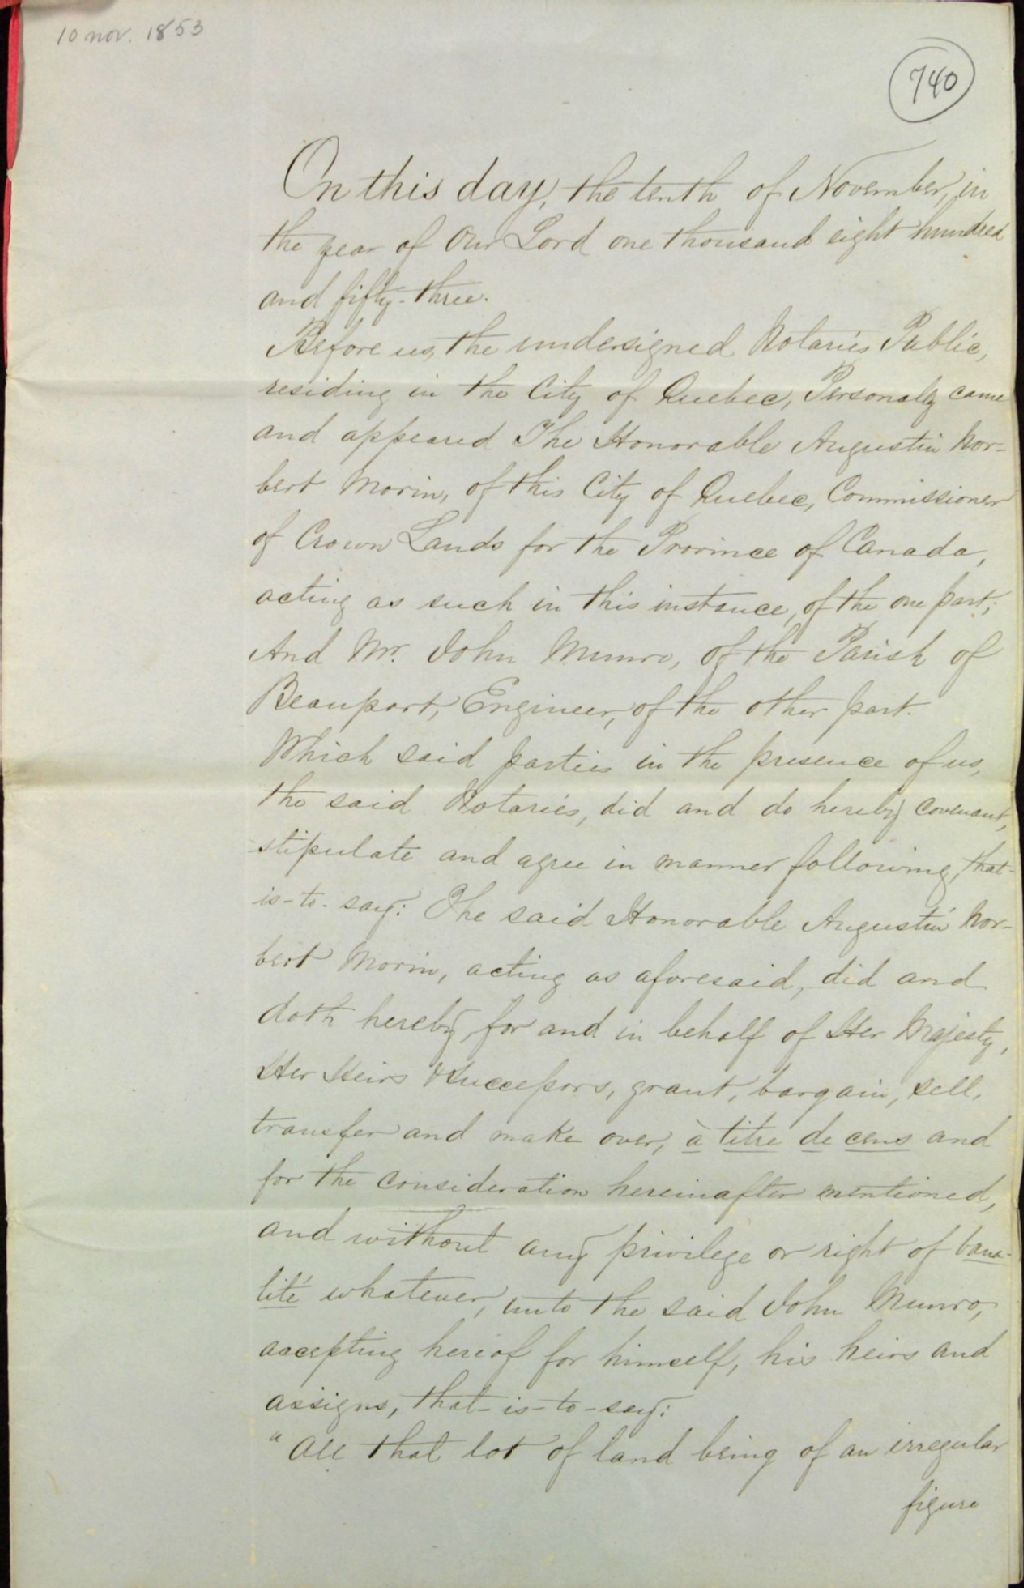 10 nov. 1853
740
On this day, the tenth of November, in
the year of Our Lord one thousand eight hundred
and fifty-three.
Before us, the undersigned Notaries Public,
residing in the City of Quebec, Personaly came
and appeared The Honorable Augustin Nor-
bert Morin, of this City of Quebec, Commissioner
of Crown Lands for the Province of Canada,
acting as such in this instance, of the one part;
And Mr. John Munro, of the Parish of
Beauport, Engineer, of the other part.
Which said parties in the presence of us,
the said Notaries, did and do hereby covenant,
stipulate and agree in manner following, that-
is-to-say: The said Honorable Augustin Nor-
bert Morin, acting as aforesaid, did and
doth hereby, for and in behalf of Her Majesty,
Her Heirs & Successors, grant, bargain, sell,
transfer and make over, à titre de cens and
for the consideration hereinafter mentioned,
and without any privilege or right of bana-
lité whatever, unto the said John Munro,
accepting hereof for himself, his heirs and
assigns, that-is-to-say:
"All that lot of land being of an irregular
figure